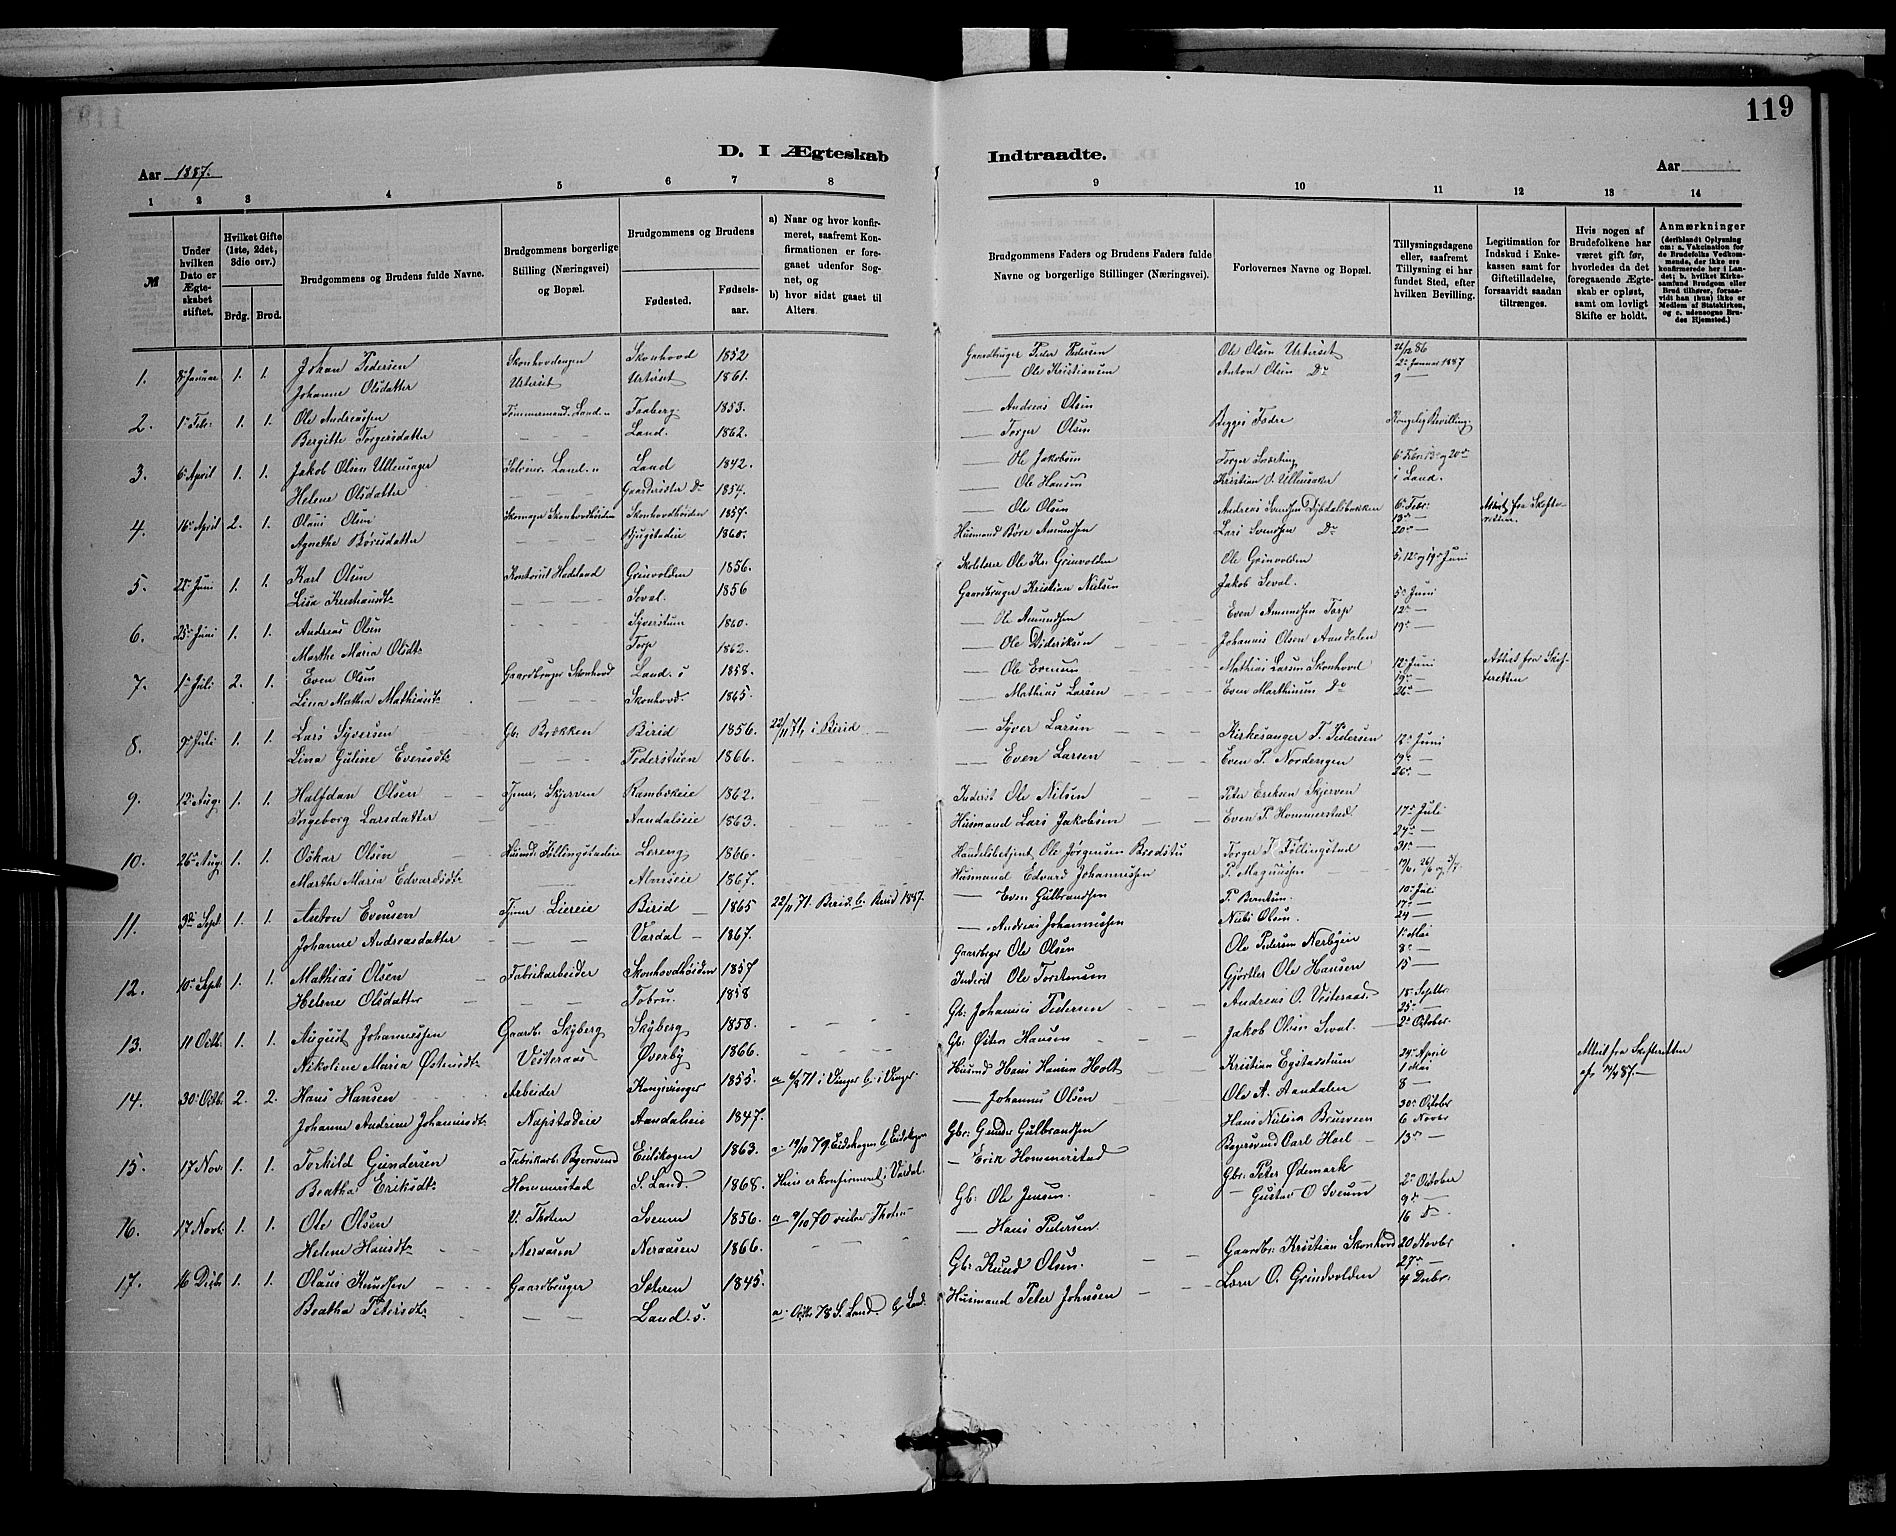 119
D. I Ægteskab Indtraadte.
Aar 1887. Aar
1 2 3 4 5 6 7 8 9 10 11 12 13 14
№
Under hvilken Dato er Ægteskabet stiftet.
Hvilket Gifte (1ste, 2det, 3die osv.)
Brdg. Brud.
Brudgommens og Brudens fulde Navne.
Brudgommens borgerlige Stilling (Næringsvei) og Bopæl.
Brudgommens og Brudens
Fødested. Fødselsaar.
a) Naar og hvor konfirmeret, saafremt Konfirmationen er foregaaet udenfor Sognet, og
b) hvor sidst gaaet til Alters.
Brudgommens Faders og Brudens Faders fulde Navne og borgerlige Stillinger (Næringsvei).
Forlovernes Navne og Bopæl.
Tillysningsdagene eller, saafremt Tillysning ei har fundet Sted, efter hvilken Bevilling.
Legitimation for Indskud i Enkekassen samt for Giftetilladelse, forsaavidt saadan tiltrænges.
Hvis nogen af Brudefolkene har været gift før, hvorledes da det foregaaende Ægteskab er opløst, samt om lovligt Skifte er holdt.
Anmærkninger (deriblandt Oplysning om: a. Vakcination for de Brudefolks Vedkommende, der ikke ere konfirmerede her i Landet; b. hvilket Kirkesamfund Brudgom eller Brud tilhører, forsaavidt han (hun) ikke er Medlem af Statskirken, og c. udensogns Brudes Hjemsted.)
1. 8' Januar 1. 1. Johan Pedersen Skonhovdengen Skonhovd 1852 Gaardbruger Peder Pedersen Ole Olsen Urterset 26/12 86
Johanne Olsdatter Urterset Urterset 1861. — Ole Kristiansen Anton Olsen Do 2' Januar 1887
9 —
2. 1' Febr. 1. 1. Ole Andreassen Tømmermand. Land Faaberg. 1853. — Andreas Olsen Begges Fædre Kongelig Bevilling
Bergitte Torgersdatter — — Land. 1862. — Torger Olsen
3. 6' April 1. 1. Jakob Olsen Ullensager Land Land 1842. — Ole Jakobsen Torger 6' Febr. 13' og 20'
Helene Olsdatter — — Do 1854. — Ole Hansen Kristian O. Ullensaker i Land.
4. 16' April 2. 1. Olaus Olsen Skomager Skonhovdhøiden Skonhovdhøiden 1857. — Ole Olsen Andreas Svendsen 6' Febr: Attest fra Skifteretten.
Agnethe Børesdatter — — 1860. Husmand Børe Amundsen Lars Svendsen Do 13' —
20' —
5. 25' Juni 1. 1. Karl Olsen Grinvolden 1856. Skolelærer Ole Kr. Grinvolden Ole Grinvolden 5' 12' og 19' Juni
Lisa Kristiansdt. — — Seval. 1856 Gaardbruger Kristian Nielsen Jakob Seval.
6. 25' Juni 1. 1. Andreas Olsen — — Syverstuen 1860. — Ole Amundsen Even Amundsen Torp 5' Juni
Marthe Maria Olsdt. Torp 1862. — Ole Dideriksen Johannes Olsen Aandalen 12' —
19' —
7. 1' Juli 2. 1. Even Olsen Gaardbruger Skonhovd Land. s 1858. — Ole Evensen Mathias Larsen Skonhovd 12' Juni Attest fra Skifteretten
Lina Mathea Mathiasdt. — — Skonhovd. 1865. — Mathias Larsen Even Marthinsen Do 19' —
26' —
8. 9' Juli 1. 1. Lars Syversen Gb. Brækken Birid 1856. 22/11 71, i Birid — Syver Larsen Kirkesanger T. Pedersen 12' Juni
Lina Guline Evensdt. — — Pederstuen 1866. — Even Larsen Even P. Nordengen 19' —
26' —
9. 12' Aug. 1. 1. Halfdan Olsen Tjener, Skjerven 1862. Inderst Ole Nilsen Peter Eriksen Skjerven
Ingeborg Larsdatter Aandalseie 1863. Husmand Lars Jakobsen Even P. Hommerstad 17' Juli
24' —
31' —
10. 26' Aug. 1. 1. Oskar Olsen Husmd. Føllingstadeie Lereng 1866. Handelsbetjent Ole Jørgensen Bredstu Torger T. Føllingstad
Marthe Maria Edvardsdt. — Alm­seie 1867. Husmand Edvard Johannessen P. Magnussen
11. 3' Sept. 1. 1. Anton Evensen Tjener Liereie Birid — 1865 22/11 71. Birid. b. Birid 1887. — Even Gulbrandsen P. Berntsen 10' Juli
Johanne Andreasdatter — — Vardal — 1867. — Andreas Johannessen Niels Olsen. 17' —
24 —
12. 10' Sept. 1. 1. Mathias Olsen Fabrikarbeider Skonhovdhøiden 1857 Gaardbrger Ole Olsen Ole Pedersen Nerbyeie 1' Mai
Helene Olsdatter — — Tobru. 1858 Inderst Ole Torstensen Gjørtler Ole Hansen 8' —
15 —
13. 11 Octb. 1. 1. August Johannessen Gaardb. Skyberg Skyberg 1858. Gb. Johannes Pedersen Andreas O. Vesteraas. 18' Septbr.
Nikoline Maria Østensdt. Vesteraas Øverby 1866. Gb. Østen Hansen Jakob Olsen Seval 25' —
2' October.
14. 30' Octb. 2. 2. Hans Hansen Arbeider Kongsvinger 1855. a 6/8 71 i Vinger b. i Vinger. Husmd Hans Hansen Holt Kristian Egstadstuen 24' April Attest fra Skifteretten af 14/4 87. —
Johanne Andrine Johannesdt. Næpstadeie Aandalseie 1847. — Johannes Olsen Ole A. Aandalen 1 Mai
8 —
15. 17 Nov. 1. 1. Torkild Gundersen Fabrikarb. Eidskogen 1863. a 19/10 79 Eidskogen b. Eidskogen Gbr. Gunder Gulbrandsen Hans Nilsen Bruveen 30' October
Beatha Eriksdt. Hommerstad S. Land. 1868. Hun er konfirmeret i Vardal. — Erik Hommerstad Carl Hoel 6 Novbr
13' —
16. 17 Novb. 1. 1. Ole Olsen V. Thoten Sveum 1856. a 9/10 70 vestre Thoten Gb. Ole Jensen. Gbr. Peter Ødemark 2' October
Helene Hansdt. Neraasen Neraasen 1866. — Hans Pedersen — Gustav O Sveum 9' —
16 D —
17. 16 Decb 1. 1. Olaus Knudsen Gaardbruger Sæteren 1845. Gb. Knud Olsen. Gaardbr. Kristian Skonhovd 20 Novbr
Beatha Petersdt. — — Land. s. a. Octbr 78 S. Land. b. Land. Husmand Peter Johnsen Lærer O. Grindvolden 27' —
4 Decbr.